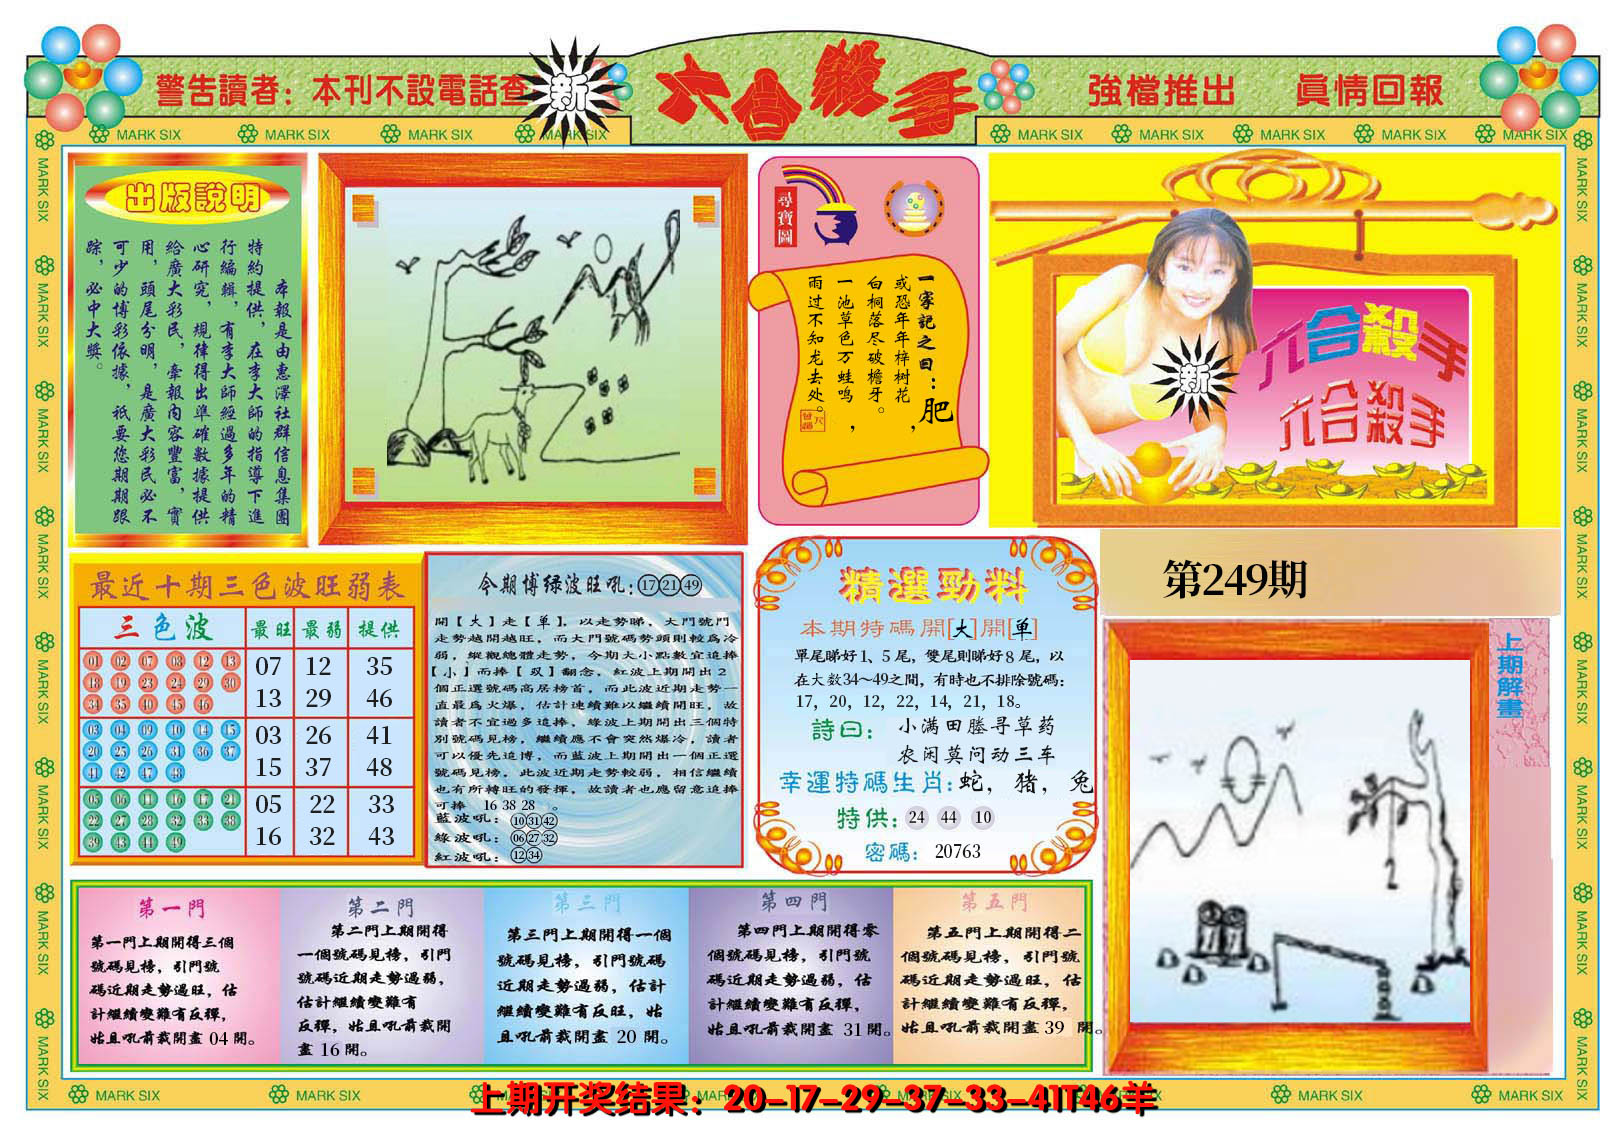 警告讀者：本刊不設電話查
新
六合殺手
強檔推出 眞情回報
MARK SIX MARK SIX MARK SIX MARK SIX
MARK SIX MARK SIX MARK SIX MARK SIX MARK SIX
出版說明
本報是由惠澤社群信息集團
特約提供，在李大師的指導下進
行編輯，有李大師經過多年的精
心研究，規律得出準確數據提供
給廣大彩民，牽報內容豐富，實
用，頭尾分明，是廣大彩民必不
可少的博彩依據，祇要您期期跟
踪，必中大獎。
尋寶圖
一家記之曰：肥
或恐年年梓树花，
白桐落尽破檐牙。
一池草色万蛙鸣，
雨过不知龙去处。
新
六合殺手
六合殺手
第249期
上期解畫
最近十期三色波旺弱表
三色波 最旺 最弱 提供
01 02 07 08 12 13
18 19 23 24 29 30
34 35 40 45 46
07 12 35
13 29 46
03 04 09 10 14 15
20 25 26 31 36 37
41 42 47 48
03 26 41
15 37 48
05 06 11 16 17 21
22 27 28 32 33 38
39 43 44 49
05 22 33
16 32 43
今期博绿波旺吼：17 21 49
開【大】走【单】，以走勢睇，大門號門
走勢越開越旺，而大門號碼勢頭則較爲冷
弱，縱觀總體走勢，今期大小點數宜追捧
【小】而捧【双】翻念，紅波上期開出2
個正選號碼高居榜首，而此波近期走勢一
直最爲火爆，估計連續難以繼續開旺，故
讀者不宜過多追捧，綠波上期開出三個特
別號碼見榜，繼續應不會突然爆冷，讀者
可以優先追博，而藍波上期開出一個正選
號碼見榜，此波近期走勢較弱，相信繼續
也有所轉旺的發揮，故讀者也應留意追捧
可捧 16 38 28 。
藍波吼：10 31 42
綠波吼：06 27 32
紅波吼：12 34
精選勁料
本期特碼開[大]開[单]
單尾睇好1、5尾，雙尾則睇好8尾，以
在大数34～49之間，有時也不排除號碼：
17，20，12，22，14，21，18。
詩曰： 小满田塍寻草药
农闲莫问动三车
幸運特碼生肖：蛇，猪，兔
特供：24 44 10
密碼： 20763
第一門
第一門上期開得三個
號碼見榜，引門號
碼近期走勢過旺，估
計繼續變難有反彈，
姑且吼前裁開畫 04 開。
第二門
第二門上期開得
一個號碼見榜，引門
號碼近期走勢過弱，
估計繼續變難有
反彈，姑且吼前裁開
畫 16 開。
第三門
第三門上期開得一個
號碼見榜，引門號碼
近期走勢過弱，估計
繼續變難有反旺，姑
且吼前裁開畫 20 開。
第四門
第四門上期開得零
個號碼見榜，引門號
碼近期走勢過弱，估
計繼續變難有反彈，
姑且吼前裁開畫 31 開。
第五門
第五門上期開得二
個號碼見榜，引門號
碼近期走勢過旺，估
計繼續變難有反彈，
姑且吼前裁開畫 39 開。
MARK SIX MARK SIX MARK SIX MARK SIX
上期开奖结果：20-17-29-37-33-41T46羊